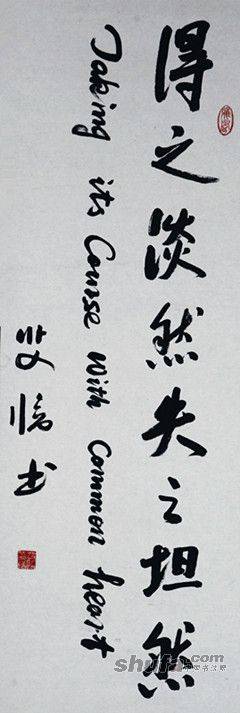 得之淡然失之坦然
Taking its Course With Common heart
shufa.com